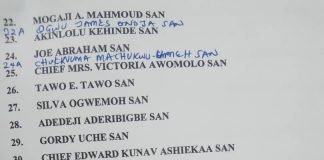 22. MOGAJI A. MAHMOUD SAN
22A OGWU JAMES ONOJA, SAN
23. AKINLOLU KEHINDE SAN
24. JOE ABRAHAM SAN
24A CHUKWUMA MACHUKWU SAN
25. CHIEF MRS. VICTORIA AWOMOLO SAN
26. TAWO E. TAWO SAN
27. SILVA OGWEMOH SAN
28. ADEDEJI ADERIBIGBE SAN
29. GORDY UCHE SAN
30. CHIEF EDWARD KUNAV ASHIEKAA SAN